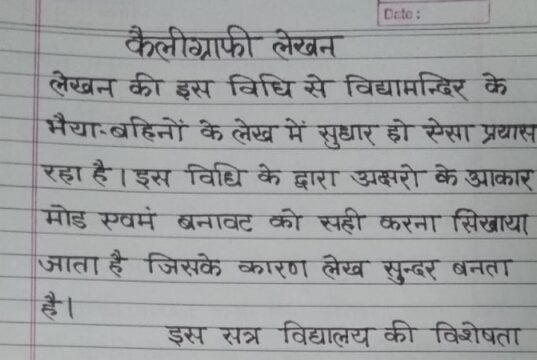 Date :
कैलीग्राफी लेखन
लेखन की इस विधि से विद्यामन्दिर के
भैया-बहिनों के लेख में सुधार हो ऐसा प्रयास
रहा है। इस विधि के द्वारा अक्षरो के आकार
मोड एवमं बनावट को सही करना सिखाया
जाता है जिसके कारण लेख सुन्दर बनता
है।
इस सत्र विद्यालय की विशेषता